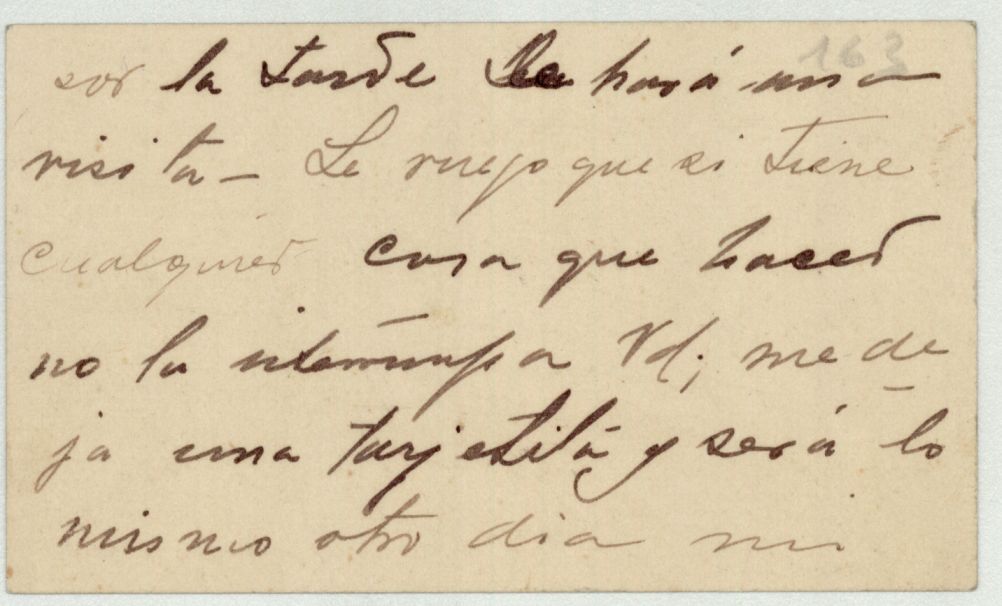 163
por la tarde le hará una
visita – Le ruego que si tiene
cualquier cosa que hacer
no la interrumpa Vd; me de
ja una tarjetita y será lo
mismo otro dia mi